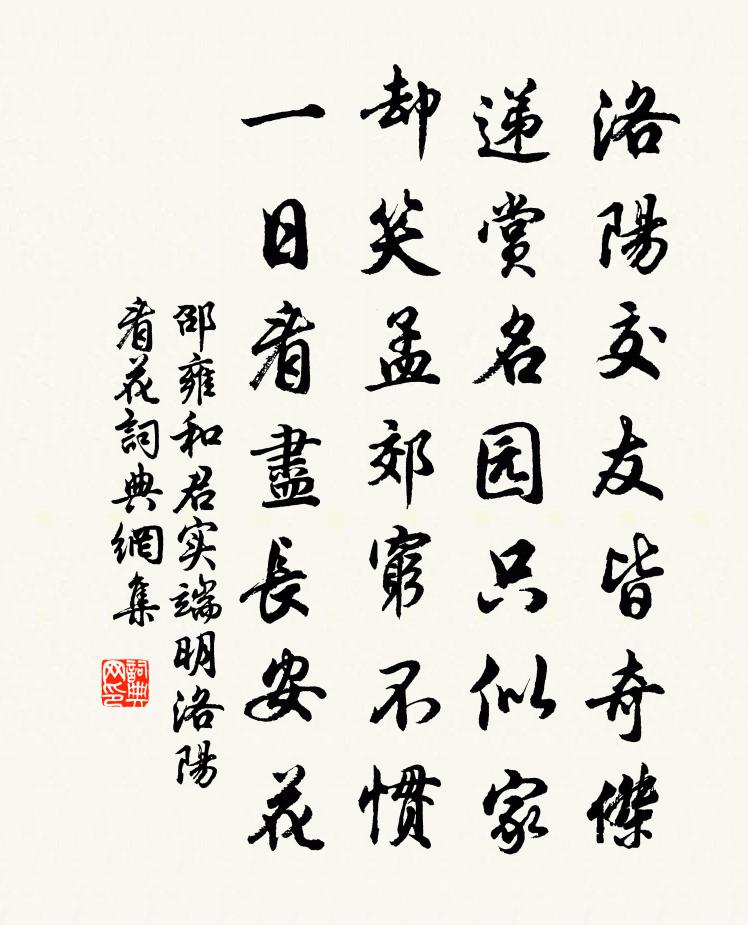 洛陽交友皆奇傑
遞賞名园只似家
却笑孟郊窮不慣
一日看盡長安花
邵雍和君实端明洛陽
看花詞典網集
詞典
网印